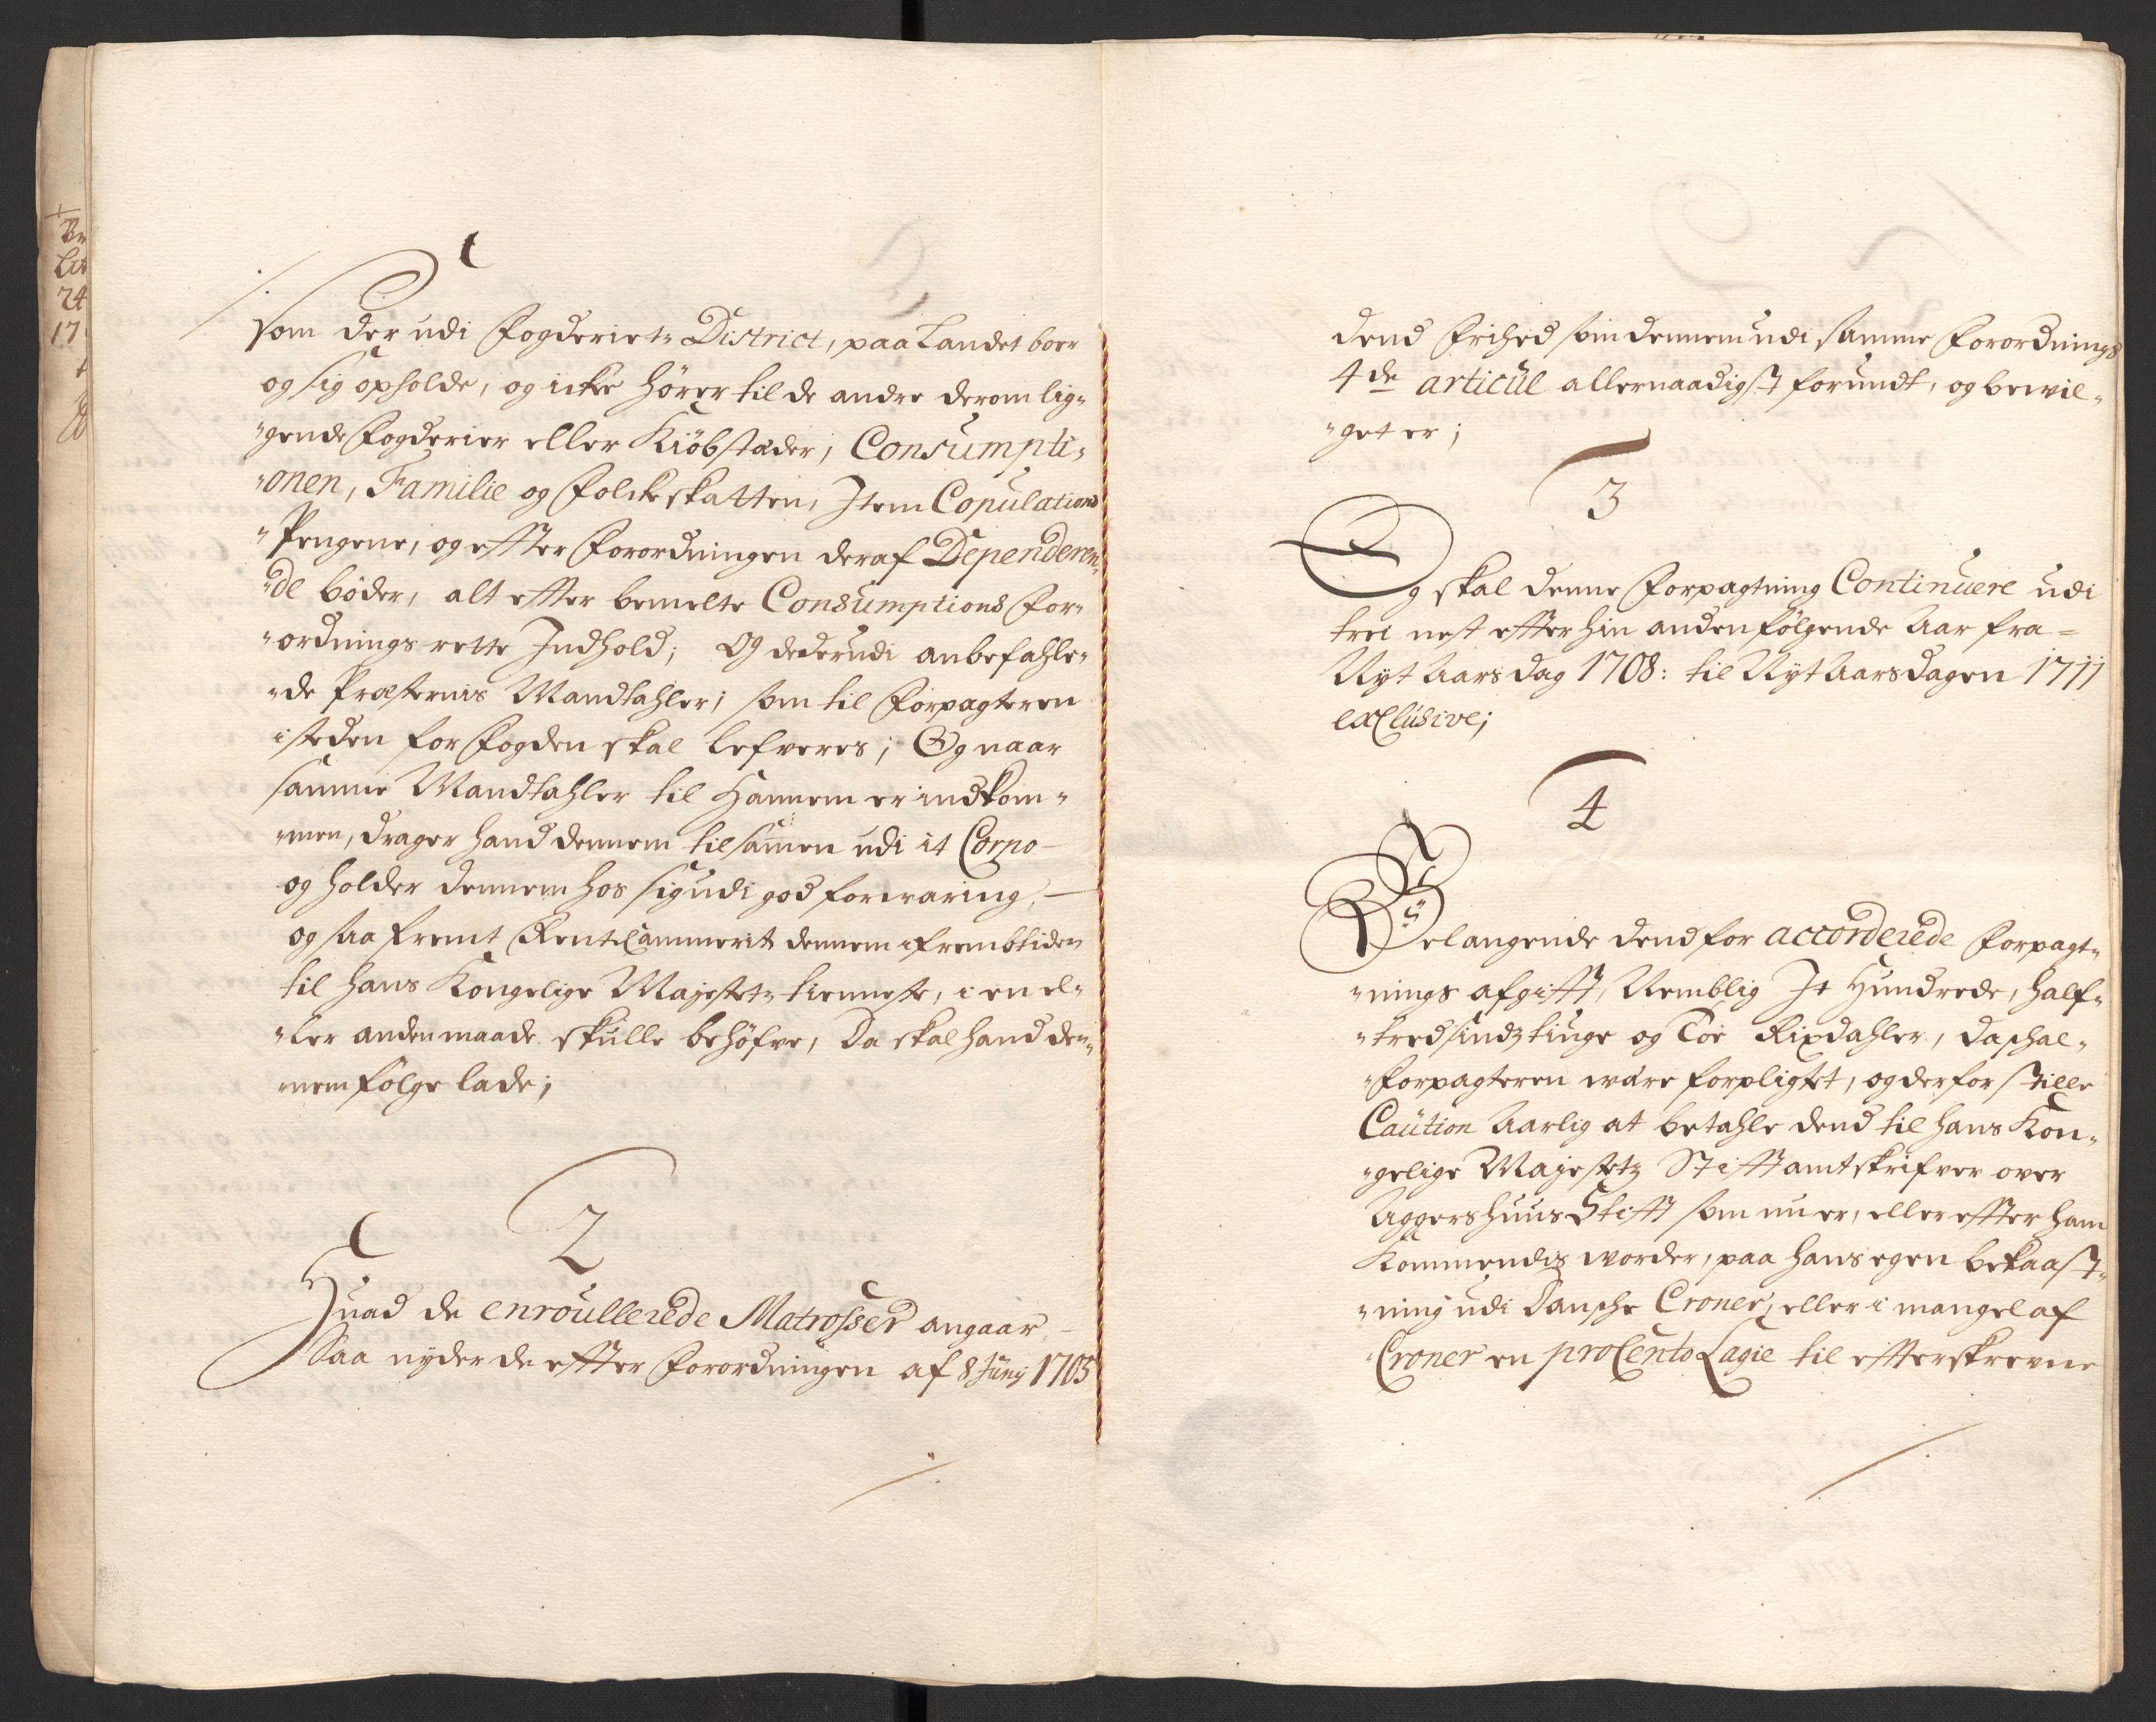 som der udi Fogderietz District, paa Landet boer
og sig opholde, og icke hører til de andre derom lig„
„gende Fogderier eller Kiöbstæder, Consumpti„
„onen, Familie og Folckeskatten, Item Copulations
„Pengene, og effter Forordningen deraf Dependeren„
„de bøder, alt effter bemelte Consumptions For„
„ordnings rette Indhold; Og de derudi anbefahle„
„de Præsternis Mandtahler, som til Forpagteren
isteden for Fogden skal lefveres; Og naar
samme Mandtahler til Hannem er indkom„
„men, drager hand dennem tilsamen udi it Corpo
og holder dennem hos sig udi god forvaring,
og saa fremt RenteCammerit dennem i frembtiden
til hans Kongelige Majestetz tienneste, i en el„
„ler anden maade skulle behöfve, Da skal hand den„
„nem følge lade;
2
Huad de enroullerede Matrosser angaar,
Saa nyder de effter Forordningen af 8 Junij 1705
dend Frihed som dennem udi samme Forordnings
4de articul allernaadigst forundt, og bevil„
„get er;
3
Og skal denne Forpagtning Continuere udi
trei nest effter hin anden følgende Aar fra
Nyt Aars dag 1708: til Nyt Aarsdagen 1711
exclusive;
4
Belangende dend for accorderede Forpagt„
„nings afgifft, Nemblig It Hundrede, half„
„tredsindz tiuge og Toe Rixdahler, da skal
Forpagteren være forpligtet, og derfor stille
Caution Aarlig at betahle dend til hans Kon„
„gelige Majestetz Stifftamtskrifver over
Aggershuus Stifft som nu er, eller effter ham
Kommendis vorder, paa hans egen bekaast„
„ning udi Dansche Croner, eller i mangel af
Croner en proCento Lagie til effterskrevne